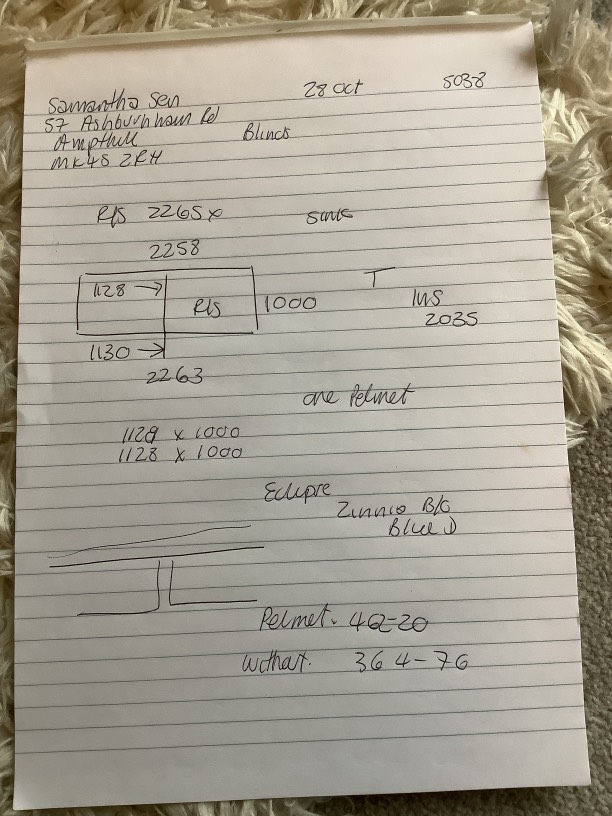 28 Oct
5038
Samantha Sen
57 Ashburnham Rd
Ampthill
MK45 2RH
Blinds
R/S 2265 x
2258
1128 →
R/S
1000
T
INS
2035
1130 →
2263
one Pelmet
1129 x 1000
1128 x 1000
Eclipse
B/O
Blue
Pelmet.
Without. 364-76